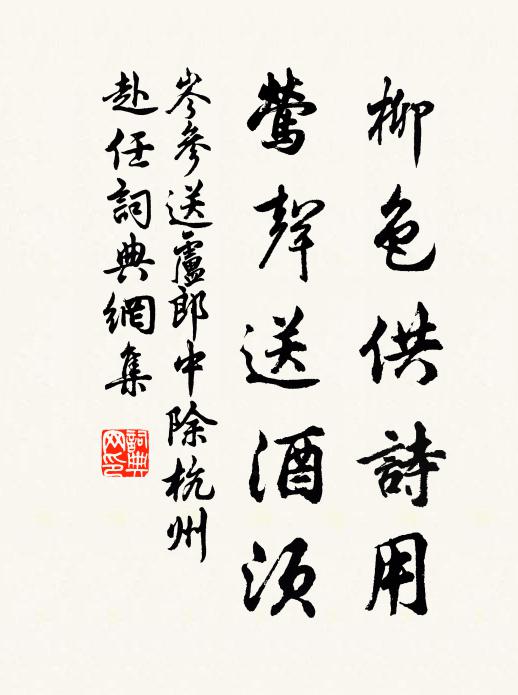 柳色供詩用
鶯聲送酒須
岑參送盧郎中除杭州
赴任詞典網集
詞典
网印